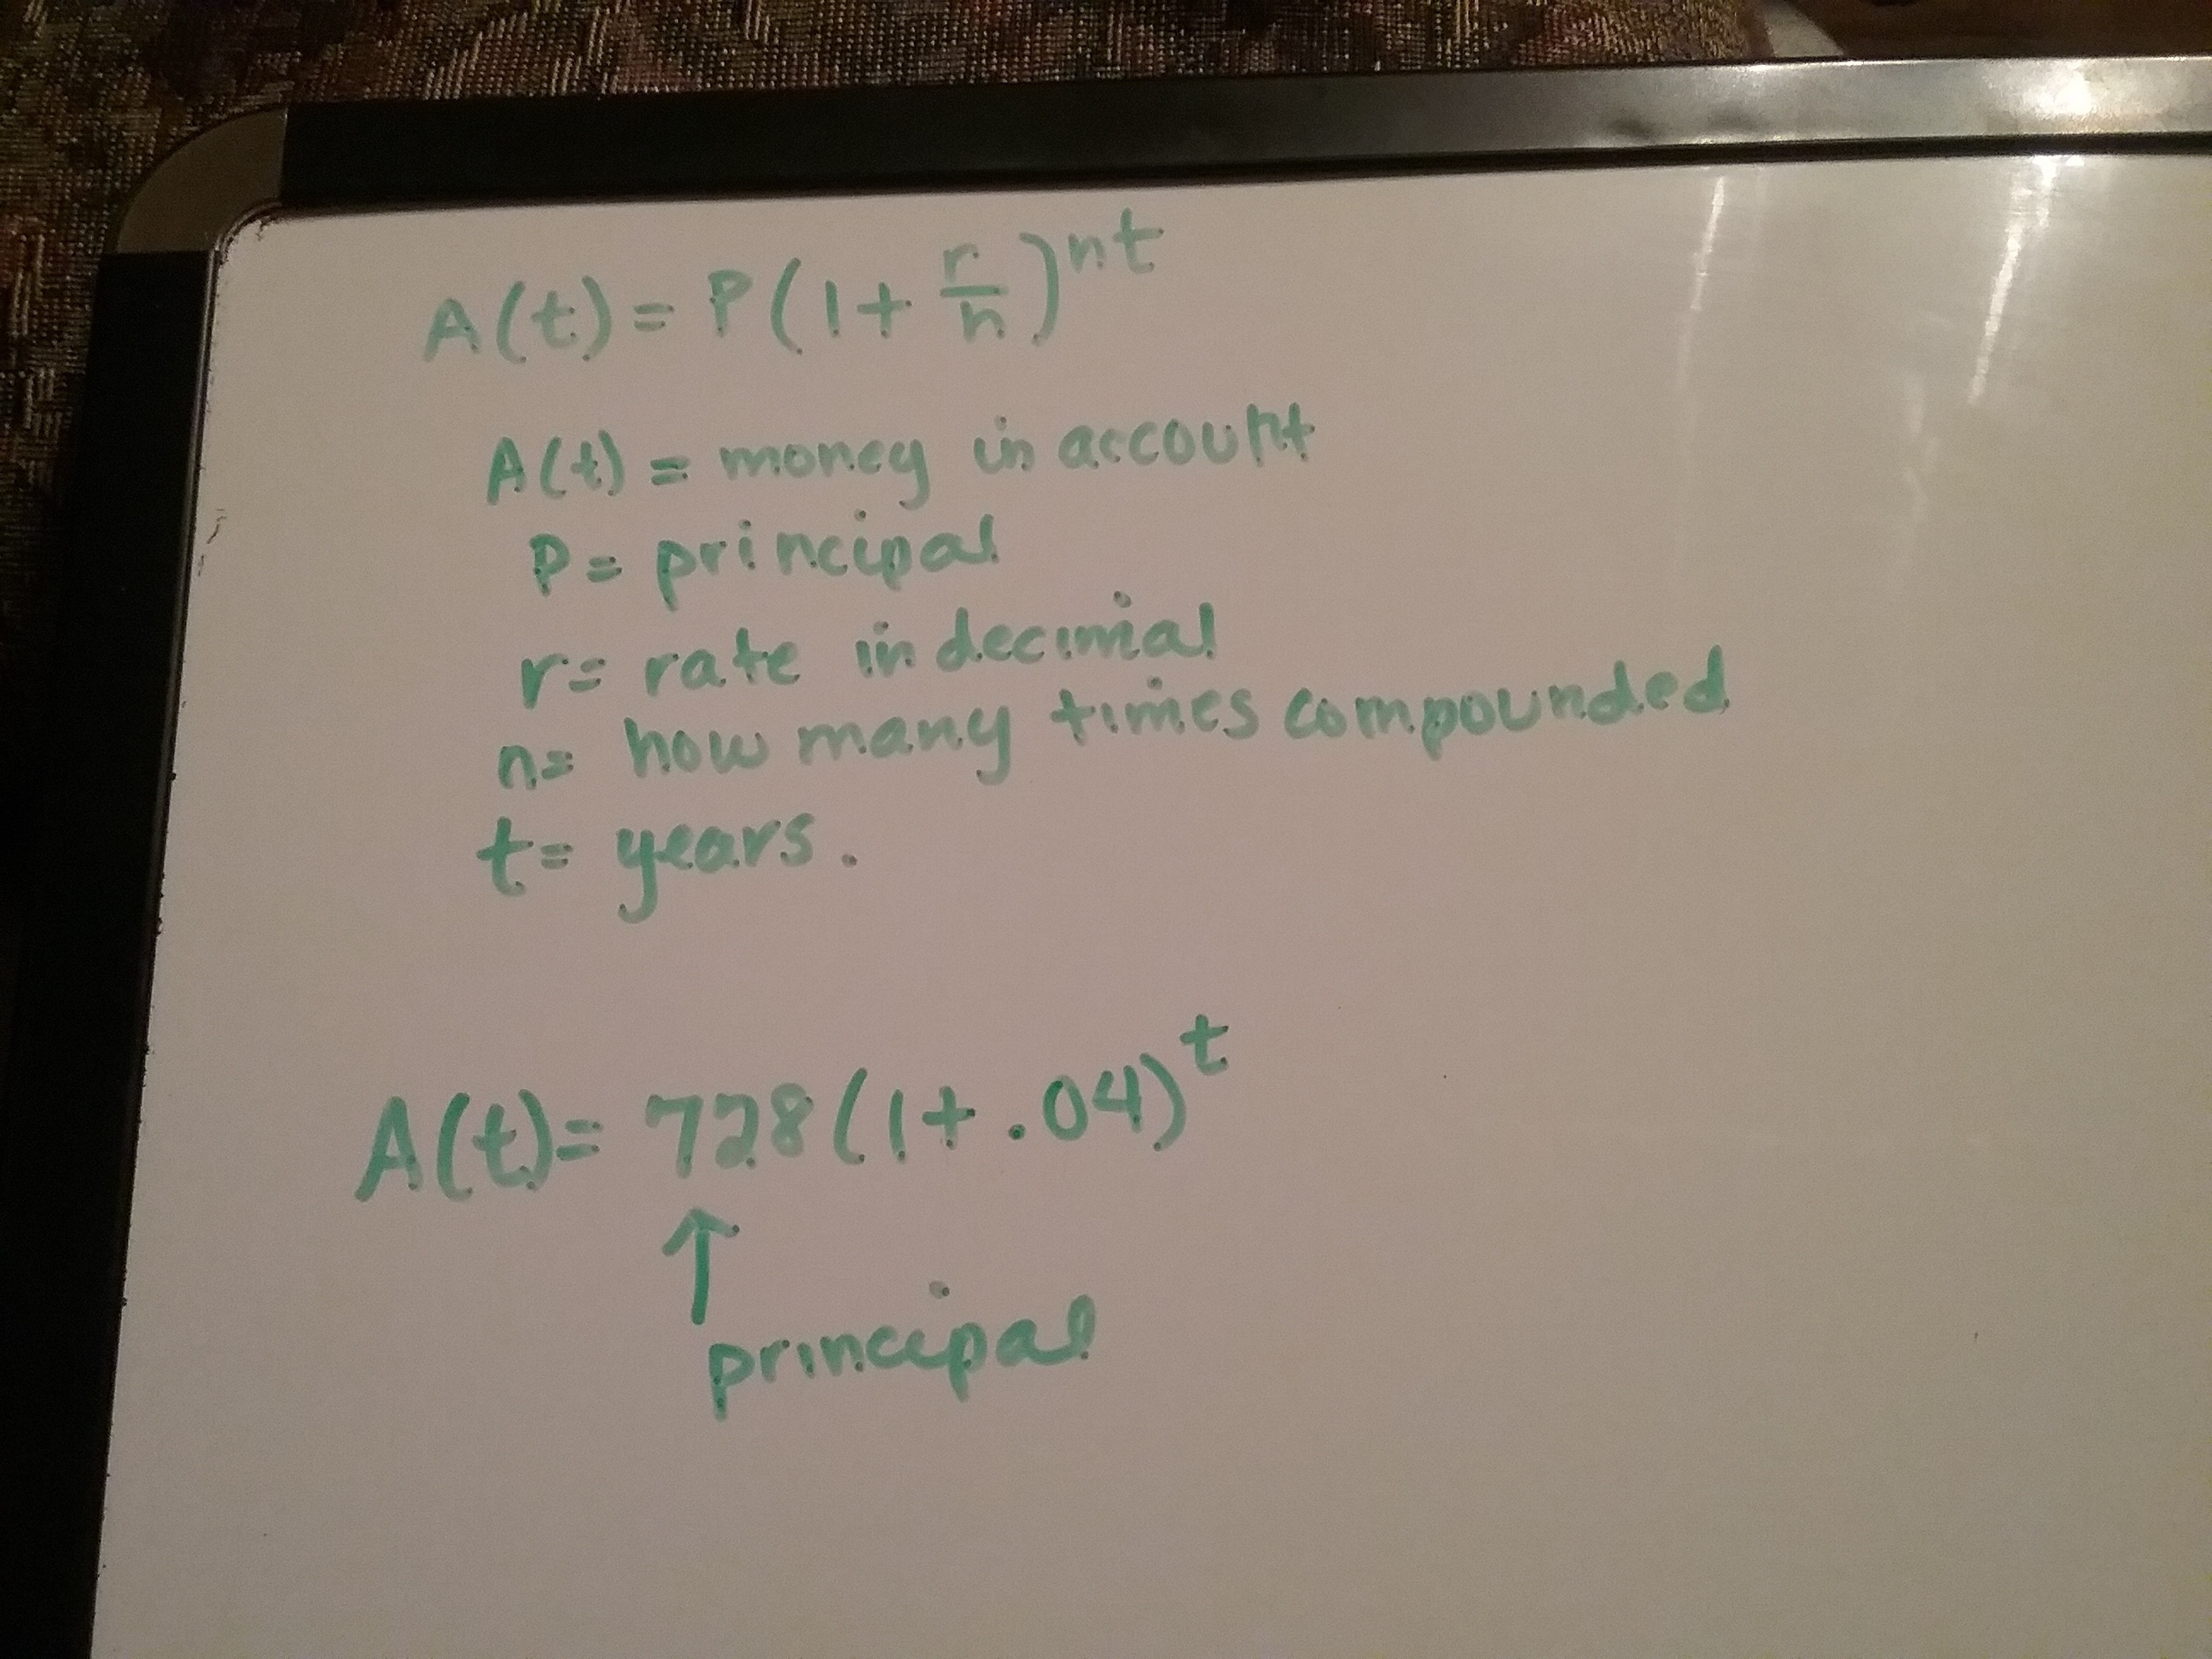 A(t) = P(1 + r/n)^nt
A(t) = money in account
P = principal
r = rate in decimal
n = how many times compounded
t = years.
A(t) = 728(1 + .04)^t
↑
principal